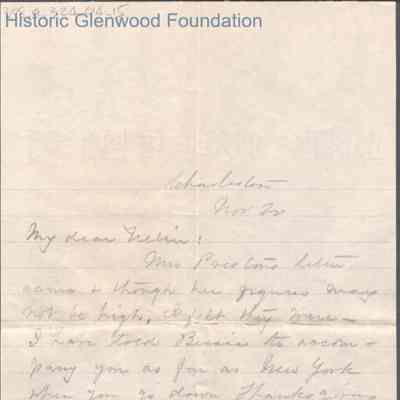 Historic Glenwood Foundation
Charleston
Nov. 20
My dear
Mrs Preston's letter
came & though her figures may
not be high, they were –
I have told Bessie to accom-
pany you as far as New York
when you go down Thanksgiving